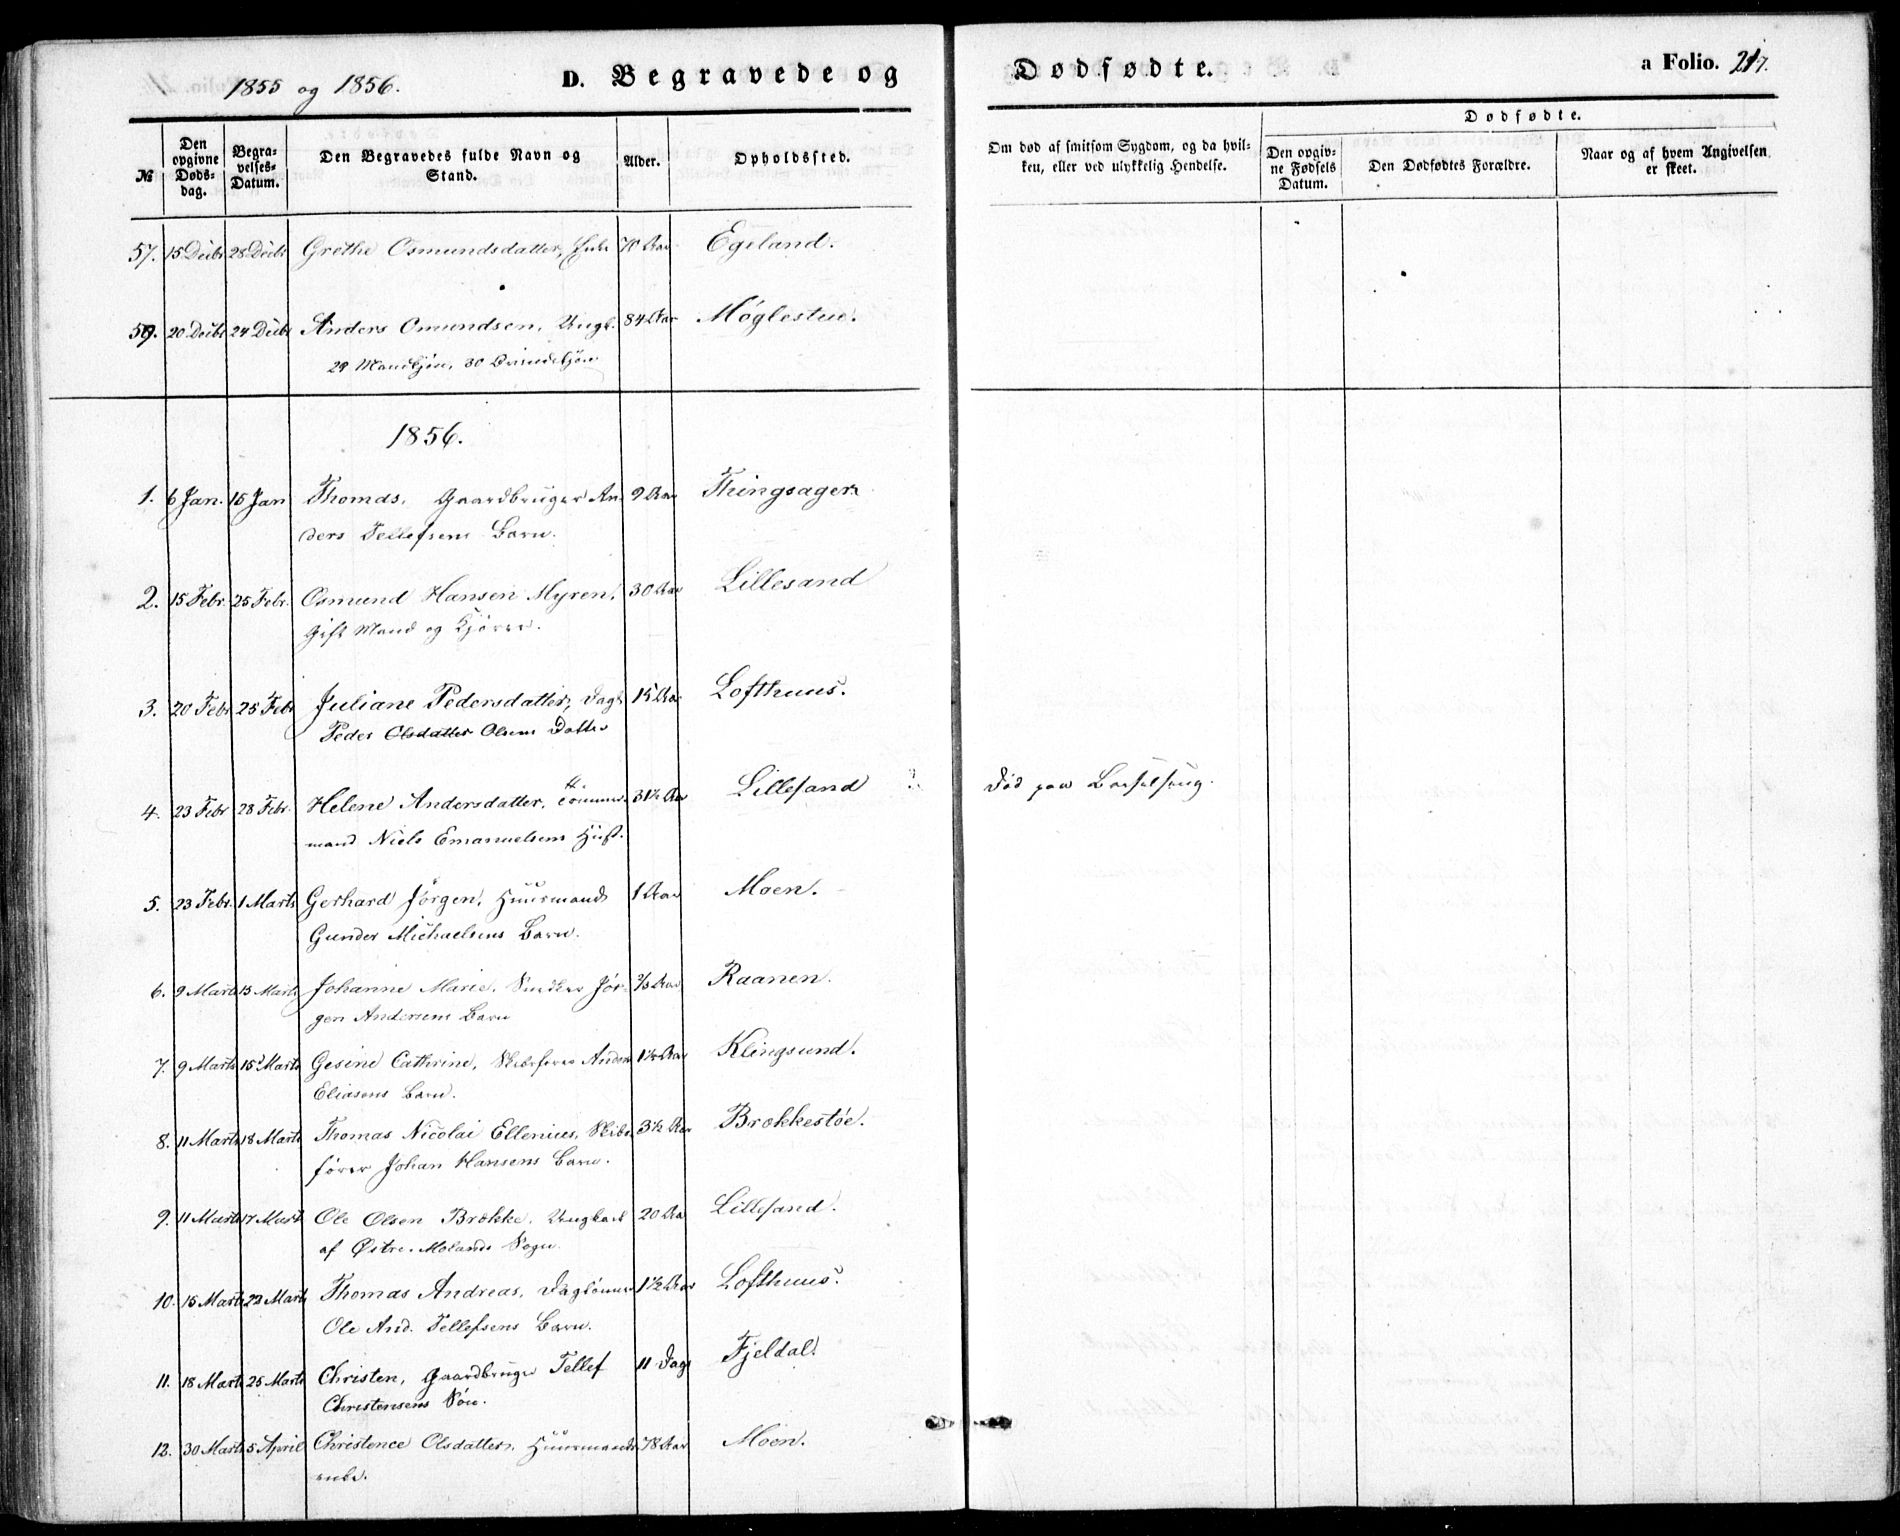 1855 og 1856.
D. Begravede og
Dødfødte.
a Folio. 217.
№
Den opgivne Døds-dag.
Begra-velses-Datum.
Den Begravedes fulde Navn og Stand.
Alder.
Opholdssted.
Om død af smitsom Sygdom, og da hvil-ken, eller ved ulykkelig Hendelse.
Dødfødte.
Den opgiv-ne Fødsels Datum.
Den Dødfødtes Forældre.
Naar og af hvem Angivelsen er skeet.
57. 15 Decbr 28 Decbr Grethe Osmundsdatter, Enke 70 Aar Egeland.
59. 20 Decbr 24 Decbr Anders Omundsen, Ungk. 84 Aar Møglestue.
29 Mandkjøn, 30 Qvindekjøn
1856.
1. 6 Jan. 15 Jan Thomas, Gaardbruger An- 9 Aar Thingsager
ders Tellefsens Barn.
2. 15 Febr. 25 Febr. Osmund Hansen Myren, 30 Aar Lillesand
Gift Mand og
3. 20 Febr 25 Febr Juliane Pedersdatter, Dagl. 15 Aar Lofthuus.
Peder Olsdatter Olsens Datter
4. 23 Febr 28 Febr. Helene Andersdatter, Tømmer- 31½ Aar Lillesand Død paa Barselseng.
mand Niels Emanuelsens Hust.
5. 23 Febr. 1 Marts Gerhard Jörgen, Huusmand 1 Aar Moen.
Gunder Michaelsens Barn.
6. 9 Marts 15 Marts Johanne Marie, Snedker Jör- Aar Raanen.
gen Andersens Barn
7. 9 Marts 15 Marts Gesine Cathrine, Skibsfører Anders 1½ Aar Klingsund.
Eliasens Barn.
8. 11 Marts 18 Marts Thomas Nicolai Ellenius, Skibs- 3½ Aar Brækkestøe.
fører Johan Hansens Barn.
9. 11 Marts 17 Marts Ole Olsen Brække, Ungkarl 20 Aar Lillesand.
af Østre-Molands Sogn.
10. 15 Marts 22 Marts Thomas Andreas, Daglönner 1½ Aar Lofthuus.
Ole And. Tellefsens Barn.
11. 18 Marts 25 Marts Christen, Gaardbruger Tellef 11 Dage Fjeldal.
Christensens Sön.
12. 30 Marts 5 April Christence Olsdatter, Huusmands 78 Aar Moen.
enke.